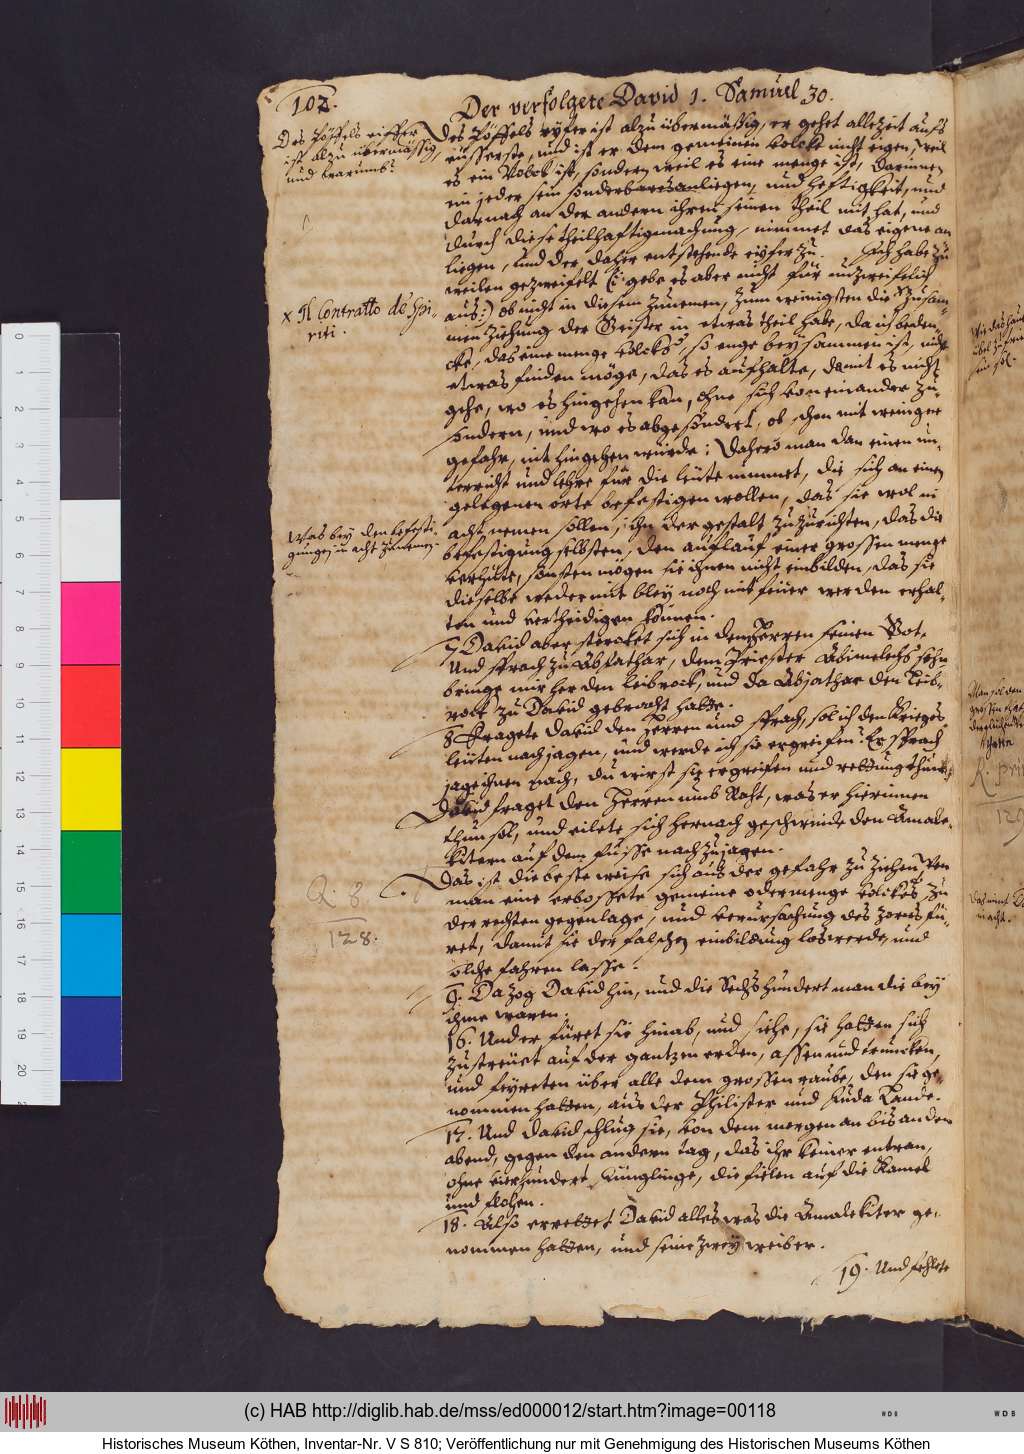 102.
Der verfolgete David 1. Samuel 30.
Des Pöffels eiffer
ist alzu übermässig,
und warumb?
Des Pöffels eyfer ist alzu übermässig, er gehet allezeit aufs
eüsserste, und ist er dem gemeinen volcke nicht eigen, weil
es ein Volck ist, sondern weil es eine menge ist, darinnen
ein jeder sein sonderbares anliegen, und heftigkeit, und
darnach an der andern ihren seinen theil mit hat, und
durch diese theilhaftigmachung, nimmet das eigene an
liegen, und der daher entstehende eyfer zu. Ich habe zu
weilen gezweifelt (: gebe es aber nicht für unzweifelich
aus:) ob nicht in diesem zunemen, zum weinigsten die Zusam-
x Il Contratto de Spi-
riti.
menziehung der Geister in etwas theil habe, da ich beden-
cke, das eine menge volcks, so enge beysammen ist, nicht
etwas finden möge, das es aufhalte, damit es nicht
gehe, wo es hingehen kan, ohne sich von einander zu
sondern, und wo es abgesondert, ob schon mit weiniger
gefahr, nit hingehen würde; Dahero man dan einen un-
terricht und lehre für die leüte nimmet, die sich an einen
gelegenen orte befestigen wollen, das sie wol in
Was bey den befesti-
gungen in acht zunemen.
acht nemen sollen, ihn der gestalt zuzurichten, das die
befestigung selbsten, den auflauf einer grossen menge
verhüte, sonsten mögen sie ihnen nicht einbilden, das sie
dieselbe weder mit bley noch mit feüer werden erhal-
ten und vertheidigen können.
7 David aber stercket sich in dem Herren seinen Got.
Und sprach zu Abjathar, dem Priester Abimelechs sohn
bringe mir her den leibrock, und da Abjathar den Leib-
rock zu David gebracht hatte.
8 Fragete David den Herren und sprach, sol ich den Krieges
leüten nachjagen, und werde ich sie ergreifen? Er sprach
jage ihnen nach, du wirst sie ergreifen und rettung thun.
David fraget den Herren umb Raht, was er hierinnen
thun sol, und eilete sich hernach geschwinde den Amale-
kitern auf dem fusse nach zu jagen.
Q. 8.
128.
Das ist die beste weise sich aus der gefahr zu ziehen, wen
man eine erbossete gemeine oder menge volckes zu
der rechten gegenlage, und verursachung des zorns fü-
ret, damit sie der falschen einbildung loswerde, und
solche fahren lasse.
9. Da zog David hin, und die Sechshundert man die bey
ihme waren.
16. Und er füret sie hinab, und siehe, sie hatten sich
zustreüet auf der gantzen erden, assen und truncken,
und feyreten über alle dem grossen raube, den sie ge-
nommen hatten, aus der Philister und Juda Lande.
17. Und David schlug sie, von dem morgen an bis an den
abend, gegen den andern tag, das ihr keiner entran,
ohne vierhundert Jünglinge, die fielen auf die Kamel
und flohen.
18. Also errettet David alles was die Amalekiter ge-
nommen hatten, und seine zwey weiber.
19. Und fehlete
(c) HAB http://diglib.hab.de/mss/ed000012/start.htm?image=00118
Historisches Museum Köthen, Inventar-Nr. V S 810; Veröffentlichung nur mit Genehmigung des Historischen Museums Köthen